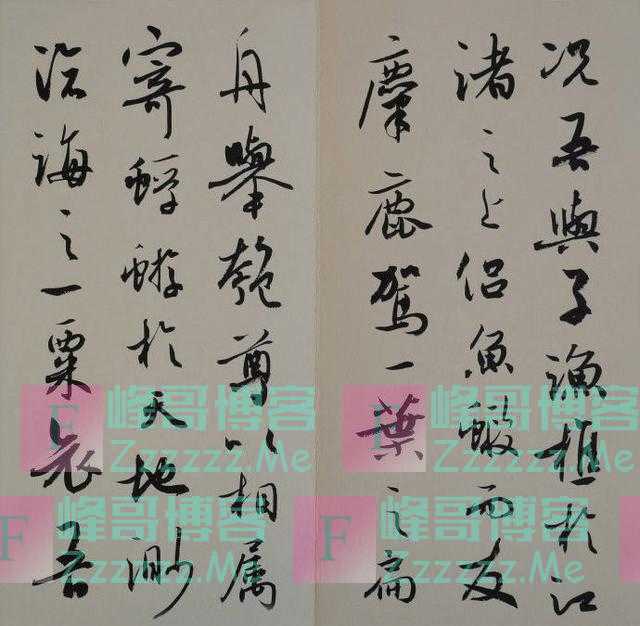 况吾與子漁樵於江
渚之上侣魚蝦而友
麋鹿駕一葉之扁
舟舉匏尊以相属
寄蜉蝣於天地渺
滄海之一粟哀吾
F 峰哥博客
Zzzzzz.Me
F 峰哥博客
Zzzzzz.Me
F 峰哥博客
Zzzzzz.Me
F 峰哥博客
Zzzzzz.Me